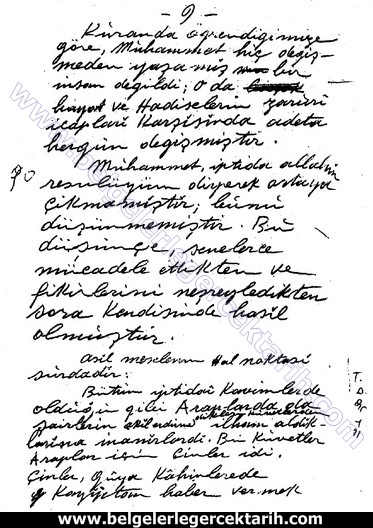 - 9 -
Kuranda öğrendiğimize
göre, Muhammet hiç değiş-
meden yaşamış bir
insan değildi; O da
ve Hadiselerin zarurî
icapları karşısında adeta
hergün değişmiştir.
Muhammet, iptida allahın
resulüyüm diyerek ortaya
çıkmamıştır; bunu
düşünmemiştir. Bu
düşünce, senelerce
mücadele ettikten ve
fikirlerini neşreyledikten
sora kendisinde hasıl
olmuştur.
asıl meselenin Hal noktası
şurdadır:
Bütün iptidaî kavimlerde
olduğu gibi Araplarda da
şairlerin ilham aldık-
larına inanırlardı. Bu kuvvetler
Araplar için Cinler idi.
Cinler, Gûya Kâhinlerede
Kayıptan haber vermek
T.
www.belgelerlegercektarih.com
www.belgelerlegercektarih.com